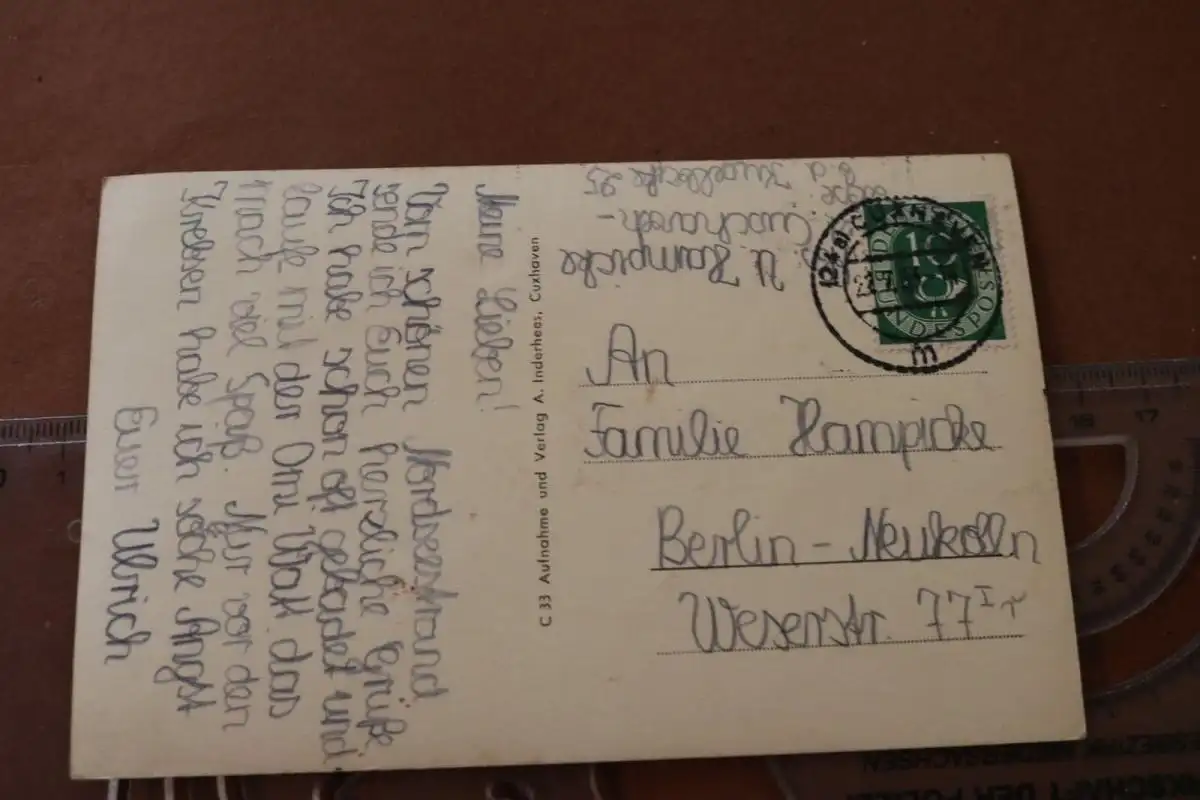 Meine Lieben!
Vom schönen Nordseestrand
sende ich Euch herzliche Grüße
Ich habe schon oft gebadet und
laufe mit der Omi Watt das
mach viel Spaß. Nur vor den
Krebsen habe ich solche Angst
Euer Ulrich
C 33 Aufnahme und Verlag A. Inderhees, Cuxhaven
U. Hampicke
Cuxhaven-
25
(24a) CUXHAVEN
m
10
BUNDESPOST
An
Familie Hampicke
Berlin-Neukölln
Weserstr. 77 I
1
16 17